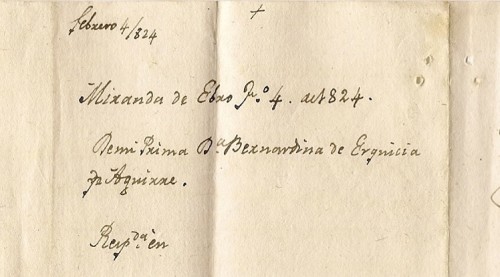 febrero 4/824
+
Miranda de Ebro Fº. 4. de 1824.
De mi Prima Dª Bernardina de Erquicia
de Aguirre.
Respda en